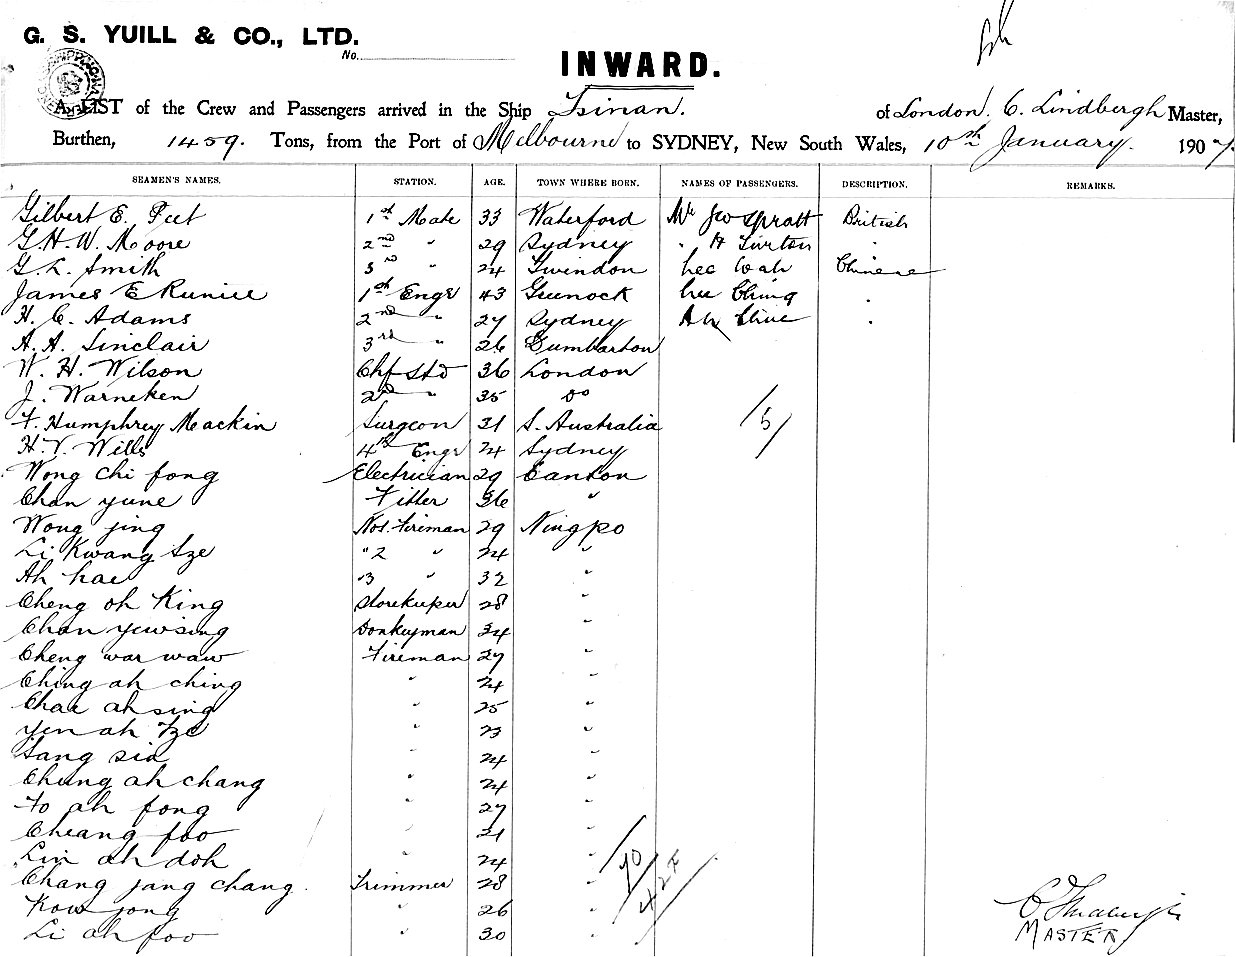 G. S. YUILL & CO., LTD.
No.
INWARD.
A LIST of the Crew and Passengers arrived in the Ship Tsinan. of London. C. Lindbergh Master,
Burthen, 1459. Tons, from the Port of Melbourne to SYDNEY, New South Wales, 10th January. 1907.
SEAMEN'S NAMES. STATION. AGE. TOWN WHERE BORN. NAMES OF PASSENGERS. DESCRIPTION. REMARKS.
Gilbert E. Peet 1st Mate 33 Waterford Mr Jno Spratt British
G. H. W. Moore 2nd " 29 Sydney " H "
G. L. Smith 3rd " 24 Gwindon Lee Wah Chinese
James E Runice 1st Engr 43 Greenock Lee Ching "
H. C. Adams 2nd " 27 Sydney Ah "
A. A. Sinclair 3rd " 26 Dumbarton
W. H. Wilson Chf Std 36 London
J. Warneken 2nd " 35 Do
F. Humphrey Mackin Surgeon 31 S. Australia 5
H. V. Wills 4th Engr 24 Sydney
Wong Chi fong Electrician 29 Canton
Chan yune Fitter 36 "
Wong jing No1. Fireman 29 Ningpo
Li Kwang Sze "2 " 24 "
Ah hae "3 " 32 "
Cheng oh King Storekeeper 28 "
Chan yewsing Donkeyman 34 "
Cheng war waw Fireman 27 "
Ching ah ching " 24 "
Chae ah sing " 25 "
Yen ah Tze " 23 "
Sang sia " 24 "
Chung ah chang " 24 "
Fo ah fong " 27 "
Cheang foo " 21 "
Lin ah doh " 24 "
Chang jang chang. Trimmer 28 " 70
Kow jong " 26 "
Li ah foo " 30 "
C Lindbergh
MASTER